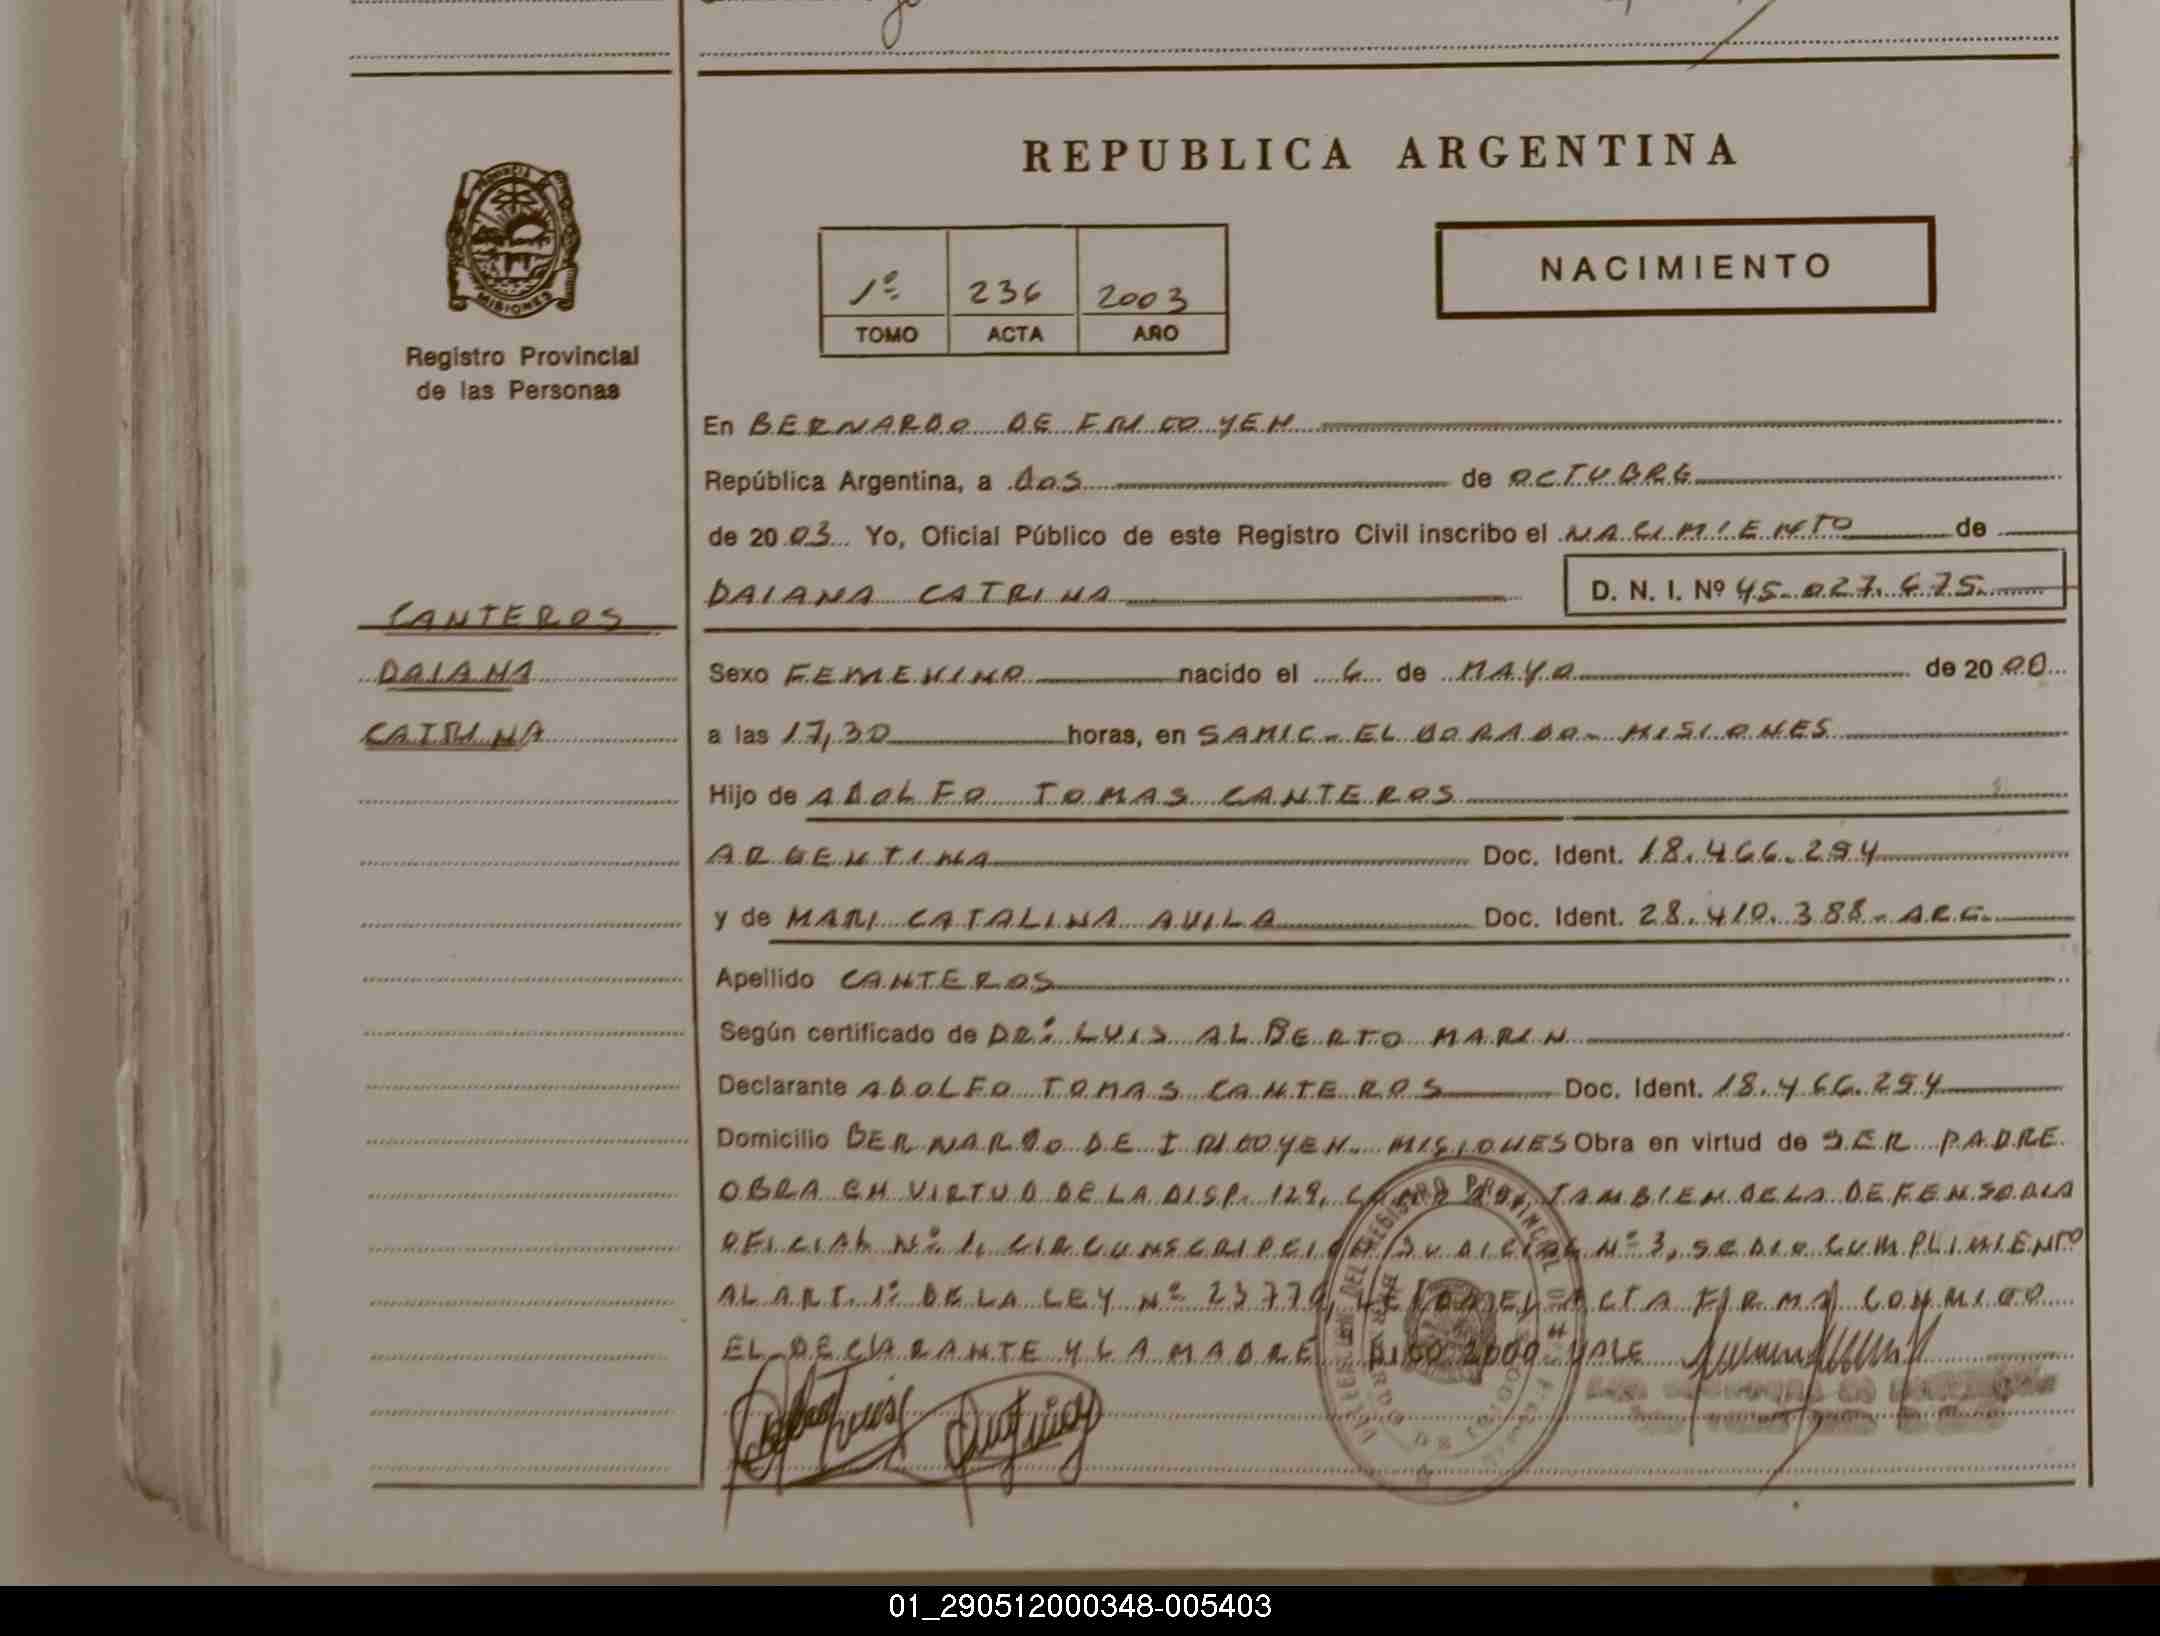 REPUBLICA ARGENTINA
PROVINCIA DE
MISIONES
Registro Provincial
de las Personas
1º 236 2003
TOMO ACTA AÑO
NACIMIENTO
En BERNARDO DE IRIGOYEN
República Argentina, a dos de OCTUBRE
de 2003 Yo, Oficial Público de este Registro Civil inscribo el NACIMIENTO de
DAIANA CATRINA D. N. I. Nº 45.027.675.
CANTEROS
DAIANA
CATRINA
Sexo FEMENINO nacido el 6 de MAYO de 2000
a las 17,30 horas, en SAMIC-ELDORADO-MISIONES
Hijo de ADOLFO TOMAS CANTEROS
ARGENTINA Doc. Ident. 18.466.254
y de MARI CATALINA AVILA Doc. Ident. 28.410.388-ARG.
Apellido CANTEROS
Según certificado de DR: LUIS ALBERTO MARIN
Declarante ADOLFO TOMAS CANTEROS Doc. Ident. 18.466.254
Domicilio BERNARDO DE IRIGOYEN-MISIONES Obra en virtud de SER PADRE
OBRA EN VIRTUD DE LA DISP. 129, TAMBIEN DE LA DEFENSORIA
OFICIAL Nº 1, CIRCUNSCRIPCION JUDICIAL Nº 3, SE DIO CUMPLIMIENTO
AL ART. 1º DE LA LEY Nº 23776, LEIDA EL ACTA FIRMA CONMIGO
EL DECLARANTE Y LA MADRE DIGO 2000 VALE
DEL REGISTRO PROVINCIAL DE
01_290512000348-005403